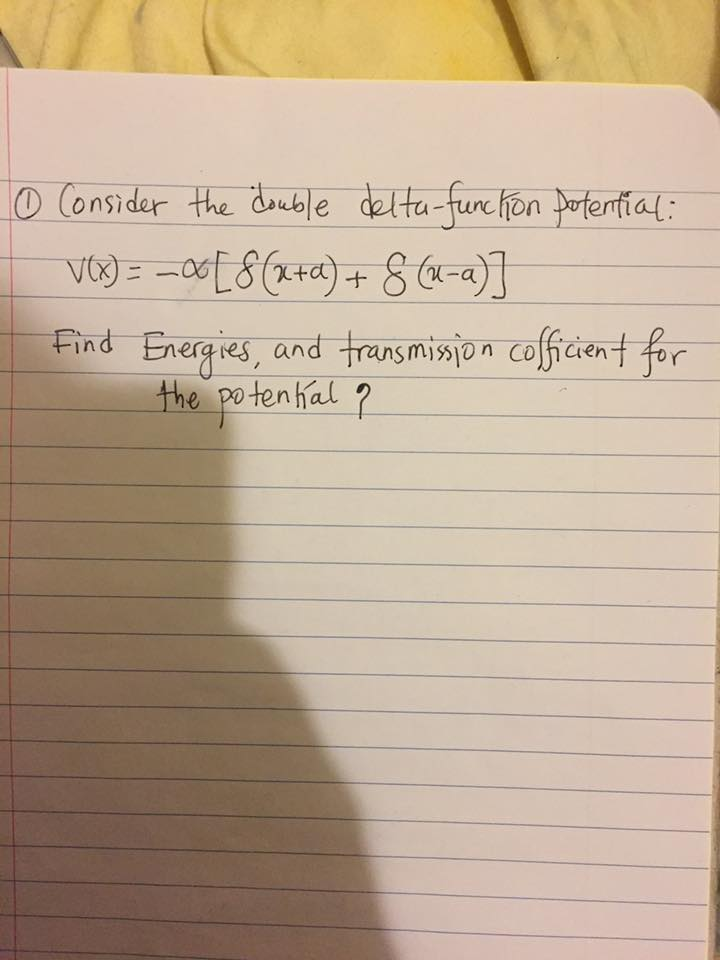 ① Consider the double delta-function potential:
V(x) = -α[δ(x+a) + δ(x-a)]
Find Energies, and transmission cofficient for
the potential ?